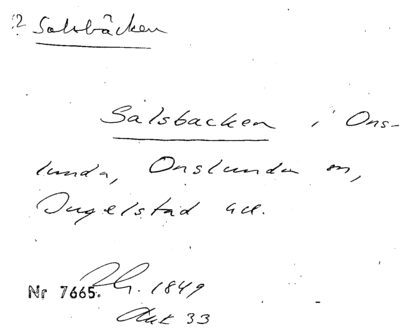 Salsbäcken
Salsbacken i Ons-
lunda, Onslunda sn,
Ingelstad hd.
Nr 7665. 1849
Akt 33